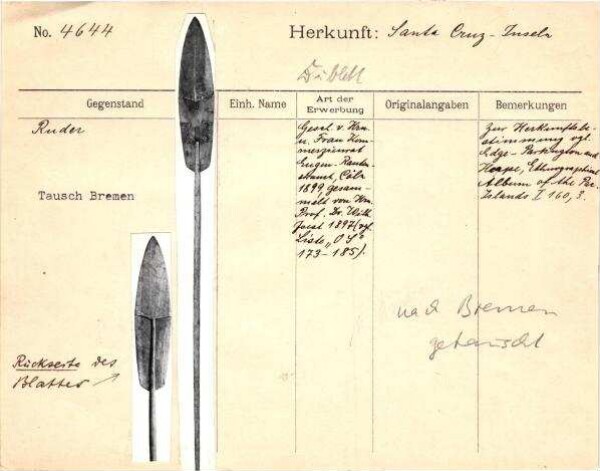 No. 4644
Herkunft: Santa Cruz-Inseln
Dublett
Gegenstand
Einh. Name
Art der
Erwerbung
Originalangaben
Bemerkungen
Ruder
Tausch Bremen
Rückseite des
Blattes
Gesch. v. Hrn.
u. Frau Kom-
merzienrat
Eugen Rauten-
strauch, Cöln
1899, gesam-
melt von Hrn.
Prof. Dr. Wilh.
Joest 1897 (vgl.
Liste „O S"
173-185).
Zur Herkunftsbe-
stimmung vgl.
Edge-Partington and
Heape, Ethnographical
Album of the Pac.
Islands I 160, 3.
nach Bremen
getauscht